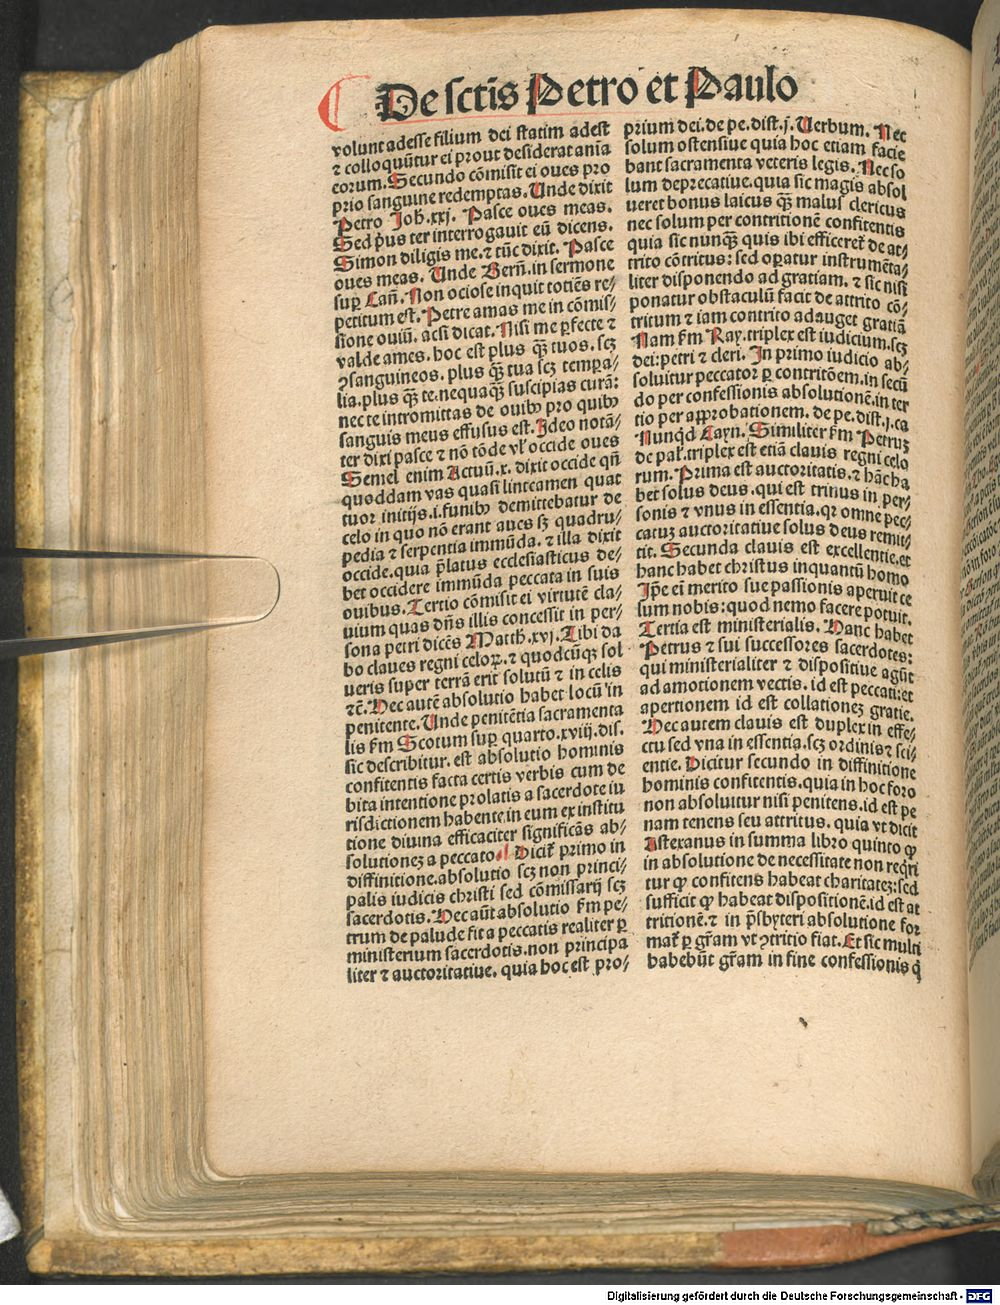 De sctis Petro et Paulo
volunt adesse filium dei statim adest
⁊ colloquūtur ei prout desiderat aīa
eorum. Secundo cōmisit ei oues pro
prio sanguine redemptas. Unde dixit
Petro Joh̄. xxj. Pasce oues meas.
Sed pͥus ter interrogauit eū dicens.
Simon diligis me. ⁊ tūc dixit. Pasce
oues meas. Unde Bern̄. in sermone
suꝑ Can̄. Non ociose inquit totiēs re⸗
petitum est. Petre amas me in cōmis⸗
sione ouiū. acsi dicat. Nisi me ꝑfecte ⁊
valde ames. hoc est plus qꝫ̄ tuos. scꝫ
ꝯsanguineos. plus qꝫ̄ tua scꝫ tempa⸗
lia. plus qꝫ̄ te. nequaqꝫ̄ suscipias curā:
nec te intromittas de ouibꝰ pro quibꝰ
sanguis meus effusus est. Ideo notā⸗
ter dixi pasce ⁊ nō tōde vl̓ occide oues
Semel enim Actuū. x. dixit occide qn̄
quoddam vas quasi linteamen quat
tuor initijs. i. funibꝰ demittebatur de
celo in quo nō erant aues sꝫ quadru⸗
pedia ⁊ serpentia immūda. ⁊ illa dixit
occide. quia p̄latus ecclesiasticus de⸗
bet occidere immūda peccata in suis
ouibus. Tertio cōmisit ei virtutē cla⸗
uium quas dn̄s illis concessit in per⸗
sona petri dicēs Matth. xvj. Tibi da
bo claues regni celoꝝ. ⁊ quodcūqꝫ sol
ueris super terrā erit solutū ⁊ in celis
⁊c̄. Hec autē absolutio habet locū in
penitente. Unde penitētia sacramenta
lis ẜm Scotum suꝑ quarto. xviij. dis.
sic describitur. est absolutio hominis
confitentis facta certis verbis cum de
bita intentione prolatis a sacerdote iu
risdictionem habente in eum ex institu
tione diuina efficaciter significās ab⸗
solutioneꝫ a peccato. Dicit̄ primo in
diffinitione. absolutio scꝫ non princi⸗
palis iudicis christi sed cōmissarij scꝫ
sacerdotis. Hec aūt absolutio ẜm pe⸗
trum de palude fit a peccatis realiter ꝑ
ministerium sacerdotis. non principa
liter ⁊ auctoritatiue. quia hoc est pro⸗
prium dei. de pe. dist. j. Uerbum. Nec
solum ostensiue quia hoc etiam facie
bant sacramenta veteris legis. Nec so
lum deprecatiue. quia sic magis absol
ueret bonus laicus qꝫ̄ malus clericus
nec solum per contritionē confitentis
quia sic nunqꝫ̄ quis ibi efficeret̄ de at⸗
trito cōtritus: sed opatur instrumēta⸗
liter disponendo ad gratiam. ⁊ sic nisi
ponatur obstaculū facit de attrito cō⸗
tritum ⁊ iam contrito adauget gratiā
Nam ẜm Ray. triplex est iudicium. scꝫ
dei: petri ⁊ cleri. In primo iudicio ab⸗
soluitur peccator ꝑ contritōem. in secū
do per confessionis absolutionē. in ter
tio per approbationem. de pe. dist. j. ca
Nunqͥd Cayn. Similiter ẜm Petruꝫ
de pal̓. triplex est etiā clauis regni celo
rum. Prima est auctoritatis. ⁊ hāc ha
bet solus deus. qui est trinus in per⸗
sonis ⁊ vnus in essentia. qꝛ omne pec⸗
catuꝫ auctoritatiue solus deus remit⸗
tit. Secunda clauis est excellentie. et
hanc habet christus inquantū homo
Ipse ei̅ merito sue passionis aperuit ce
lum nobis: quod nemo facere potuit.
Tertia est ministerialis. Hanc habet
Petrus ⁊ sui successores sacerdotes:
qui ministerialiter ⁊ dispositiue agūt
ad amotionem vectis. id est peccati: et
apertionem id est collationeꝫ gratie.
Hec autem clauis est duplex in effe⸗
ctu sed vna in essentia. scꝫ ordinis ⁊ sci⸗
entie. Dicitur secundo in diffinitione
hominis confitentis. quia in hoc foro
non absoluitur nisi penitens. id est pe
nam tenens seu attritus. quia vt dicit
Astexanus in summa libro quinto ꝙ
in absolutione de necessitate non reqͥri
tur ꝙ confitens habeat charitateꝫ: sed
sufficit ꝙ habeat dispositionē. id est at
tritionē. ⁊ in p̄sbyteri absolutione for
mat̄ ꝑ gr̄am vt ꝯtritio fiat. Et sic multi
habebūt gr̄am in fine confessionis q̇
Digitalisierung gefördert durch die Deutsche Forschungsgemeinschaft - DFG